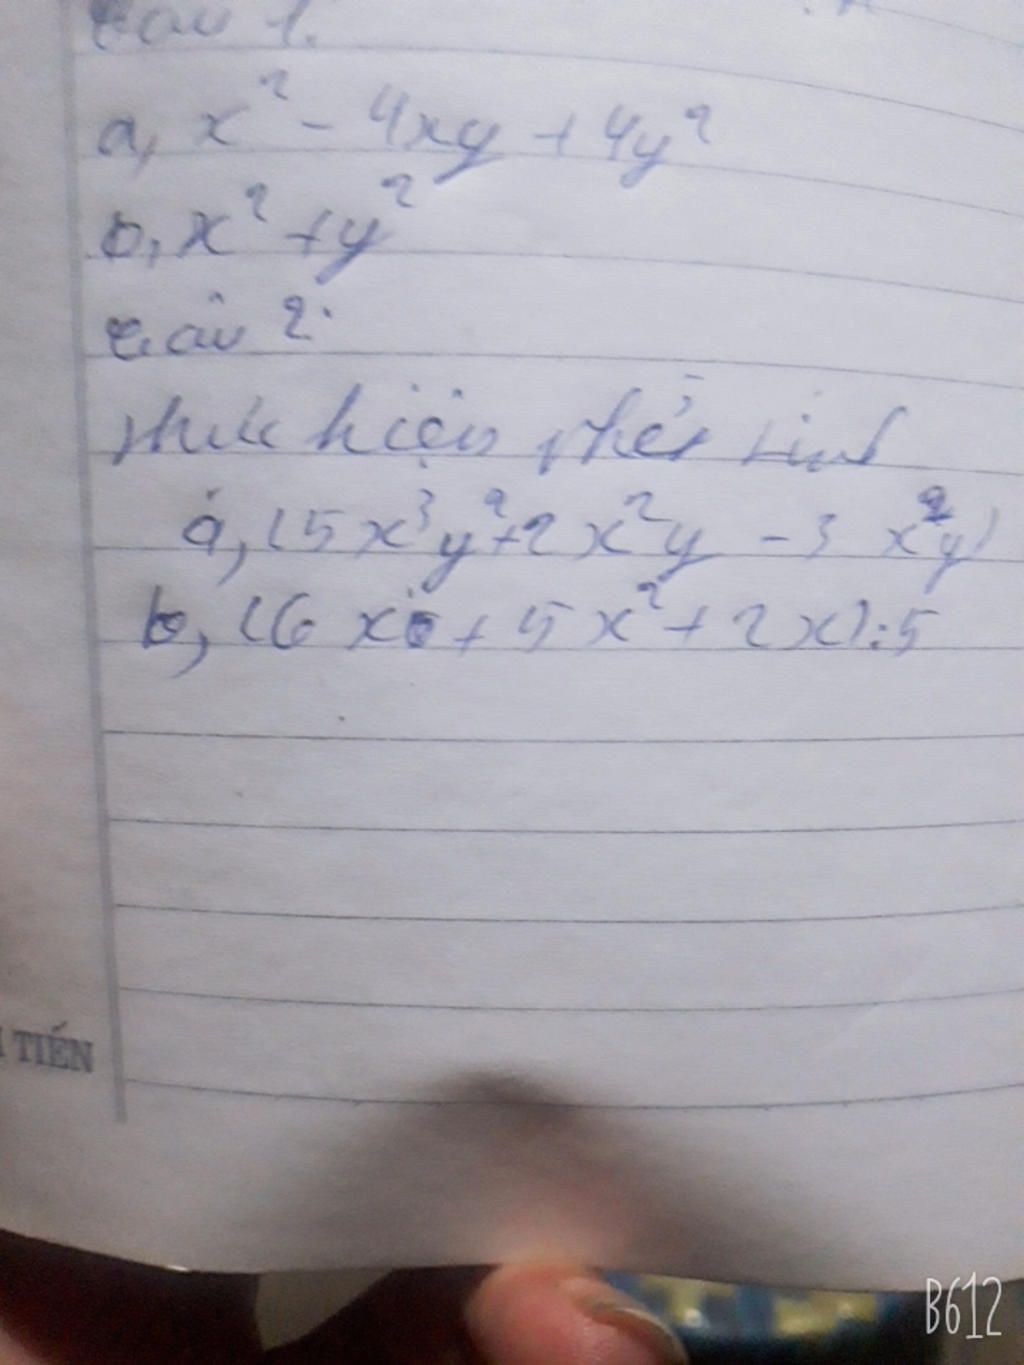 Câu 1.
a, x² - 4xy + 4y²
b, x² + y²
Câu 2:
thực hiện phép tính
a, (5x³y² + 2x²y - 3x²y)
b, (6x + 5x² + 2x) : 5
TIẾN
B612